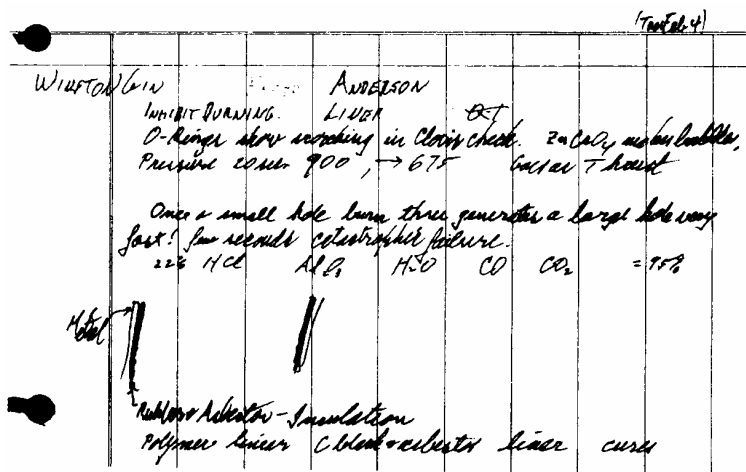 (Tues Feb 4)
WINSTON GIN ANDERSON
INHIBIT BURNING. LINER
O-Rings show scorching in Clovis check. ZnCrO4 makes bubbles.
Pressure 900, → 675 Thrust
Once a small hole burn thru generates a large hole very
fast! few seconds catastrophic failure.
22% HCl H2O CO CO2 = 95%
Metal
Rubber Asbestos - Insulation
Polymer liner C black + asbestos liner cures